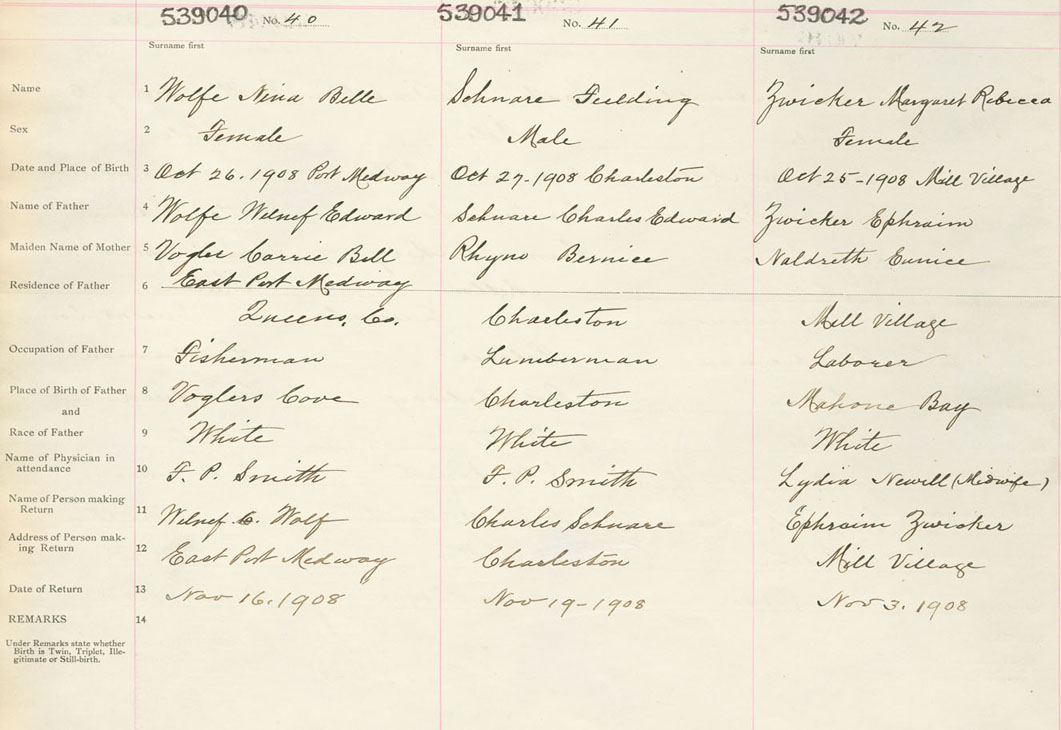 539040 No. 40 539041 No. 41 539042 No. 42
Surname first Surname first Surname first
Name 1 Wolfe Nina Belle Schnare Feilding Zwicker Margaret Rebecca
Sex 2 Female Male Female
Date and Place of Birth 3 Oct 26. 1908 Port Medway Oct 27-1908 Charleston Oct 25-1908 Mill Village
Name of Father 4 Wolfe Welnef Edward Schnare Charles Edward Zwicker Ephraim
Maiden Name of Mother 5 Vogler Carrie Bell Rhyno Bernice Naldreth Eunice
East Port Medway
Residence of Father 6 Queens, Co. Charleston Mill Village
Occupation of Father 7 Fisherman Lumberman Laborer
Place of Birth of Father 8 Voglers Cove Charleston Mahone Bay
and
Race of Father 9 White White White
Name of Physician in
attendance 10 F. P. Smith F. P. Smith Lydia Newill (Midwife)
Name of Person making
Return 11 Welnef Wolf Charles Schnare Ephraim Zwicker
Address of Person mak-
ing Return 12 East Port Medway Charleston Mill Village
Date of Return 13 Nov 16. 1908 Nov 19-1908 Nov 3. 1908
REMARKS 14
Under Remarks state whether
Birth is Twin, Triplet, Ille-
gitimate or Still-birth.